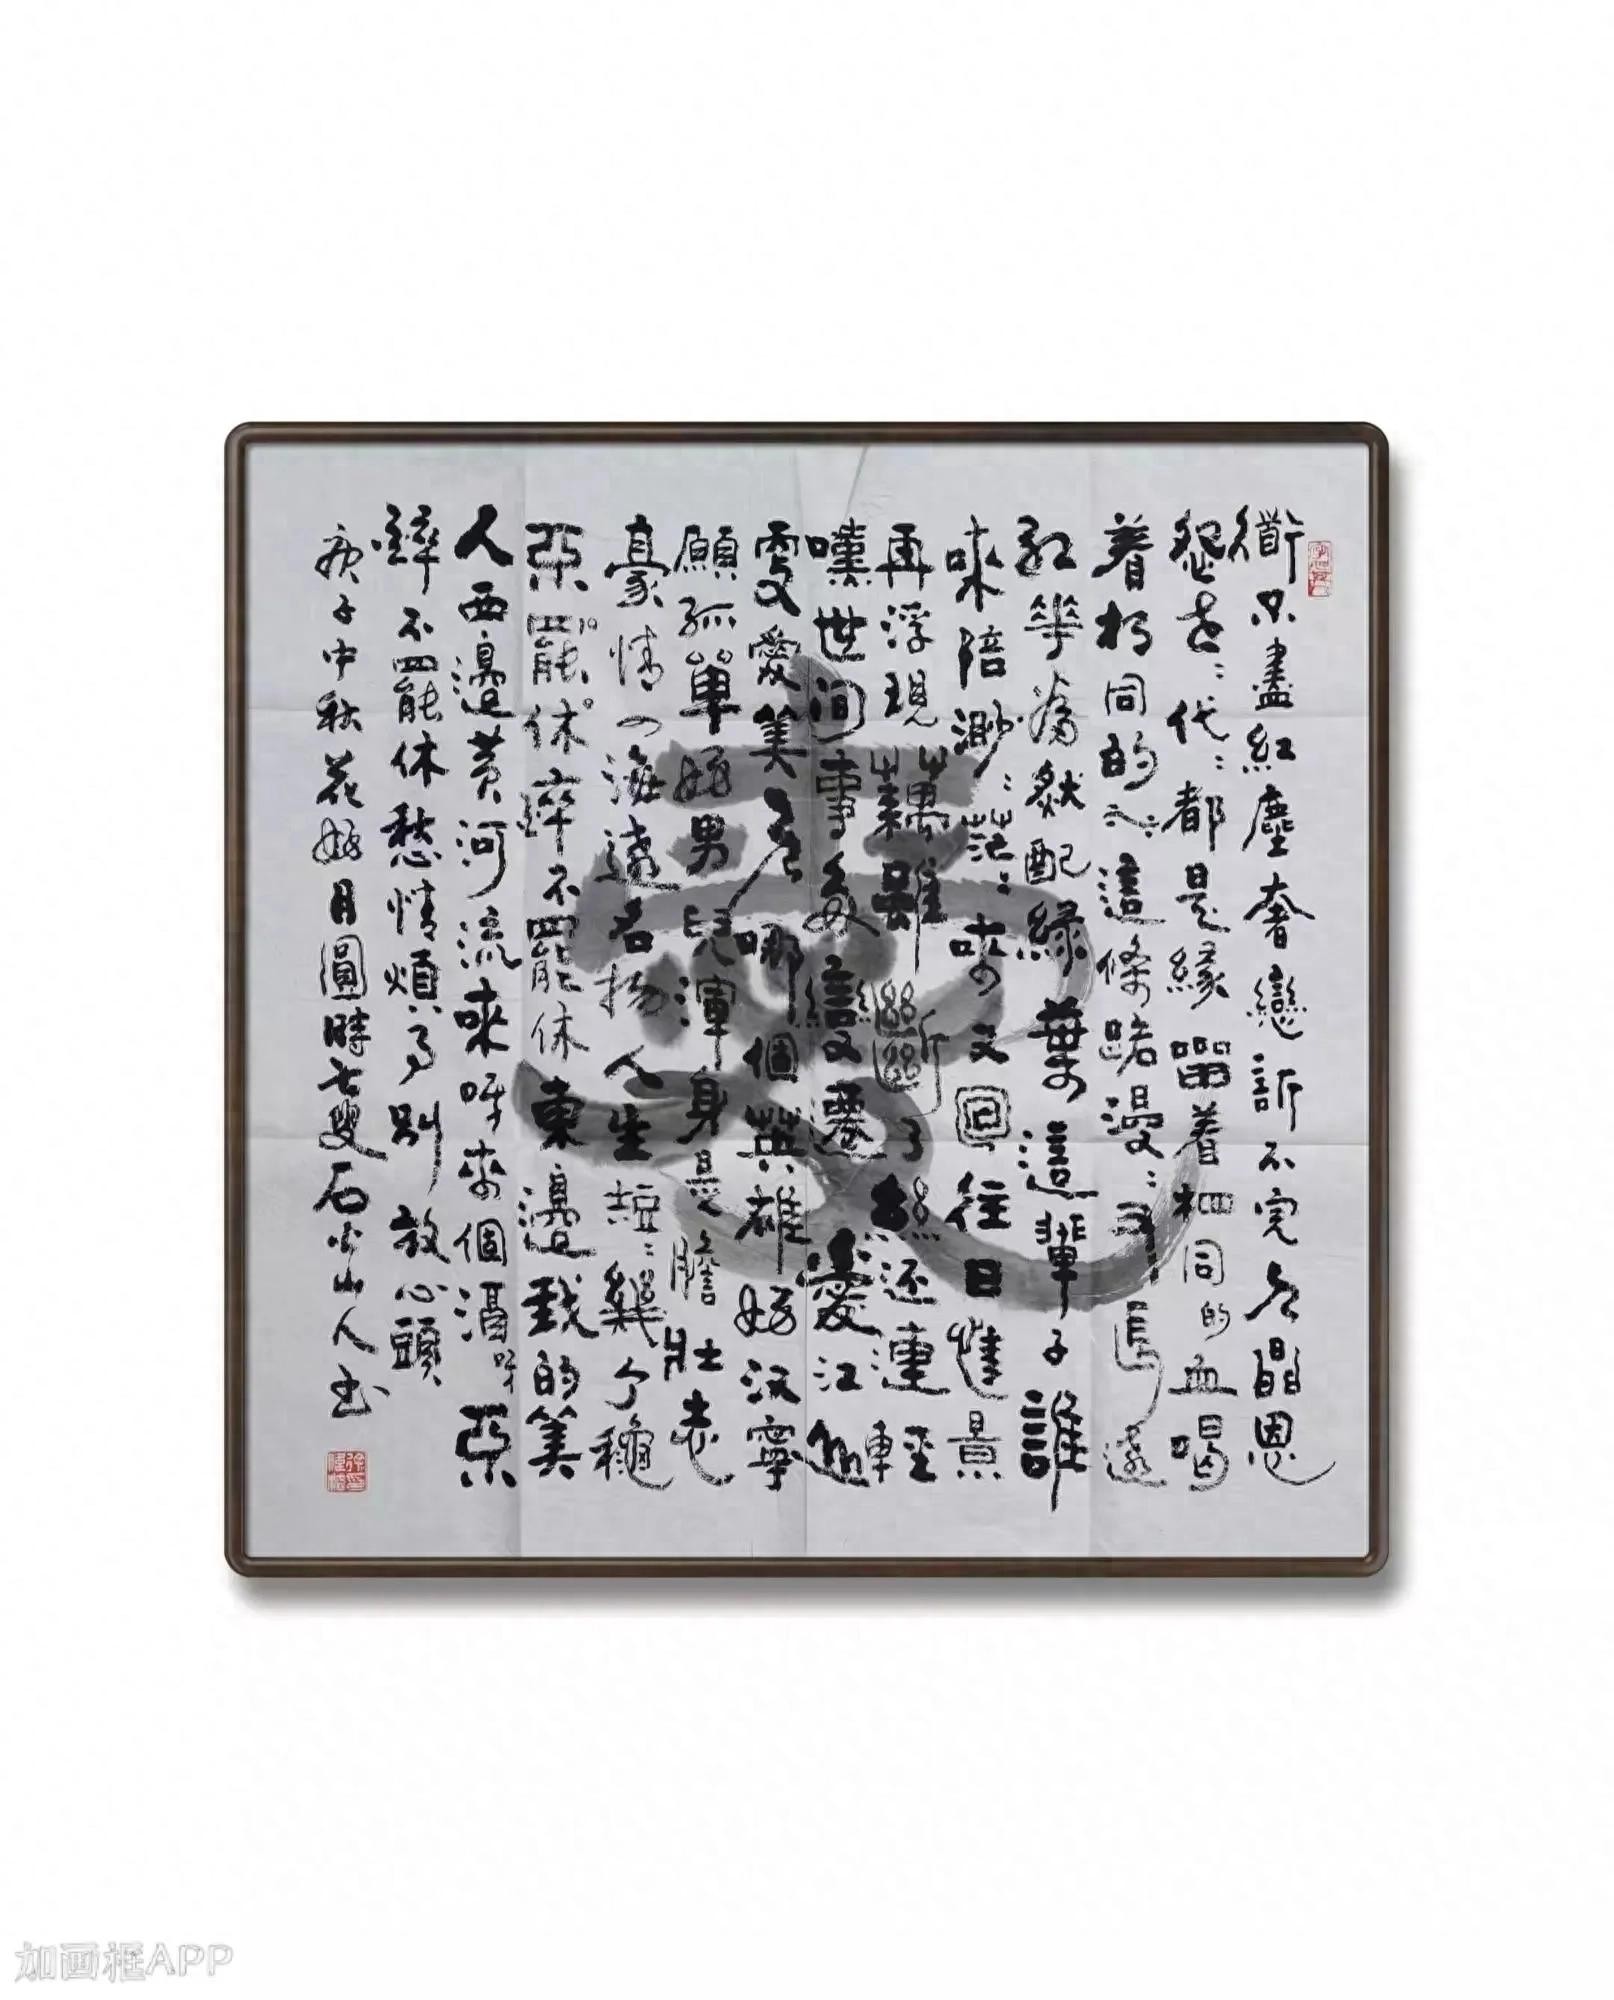 衜不盡紅塵奢戀訴不完人間恩
怨世:代:都是緣畱着相同的血喝
着相同的水這條路漫:又長遠
紅華當然配綠葉這輩子誰
來陪渺:茫:來又回往日情景
再浮現藕雖斷了絲還連輕
嘆世間事多變遷愛江山
更愛美人哪個英雄好汉寧
願孤單好男兒渾身是膽壯志
豪情四海遠名揚人生短:幾个穐
亞罷休醉不罷休東邊我的美
人西邊黃河流來呀來個酒呀亞
醉不罷休愁情煩事別放心頭
庚子中秋花好月圓時七叟石山人書
加画框APP